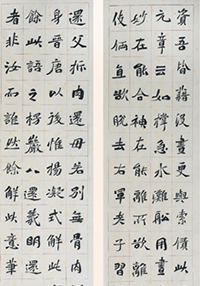 資吾皆籍沒盡更與索債此
元章云如撐急水灘船用盡
妙在能合神在能離所欲離
伎倆直欲脫去右軍老子習
還父析肉還母若別無骨肉
身晉唐以後惟楊凝式解此
餘此語悟之楞嚴八還義明還
者非汝而誰然餘解此意筆